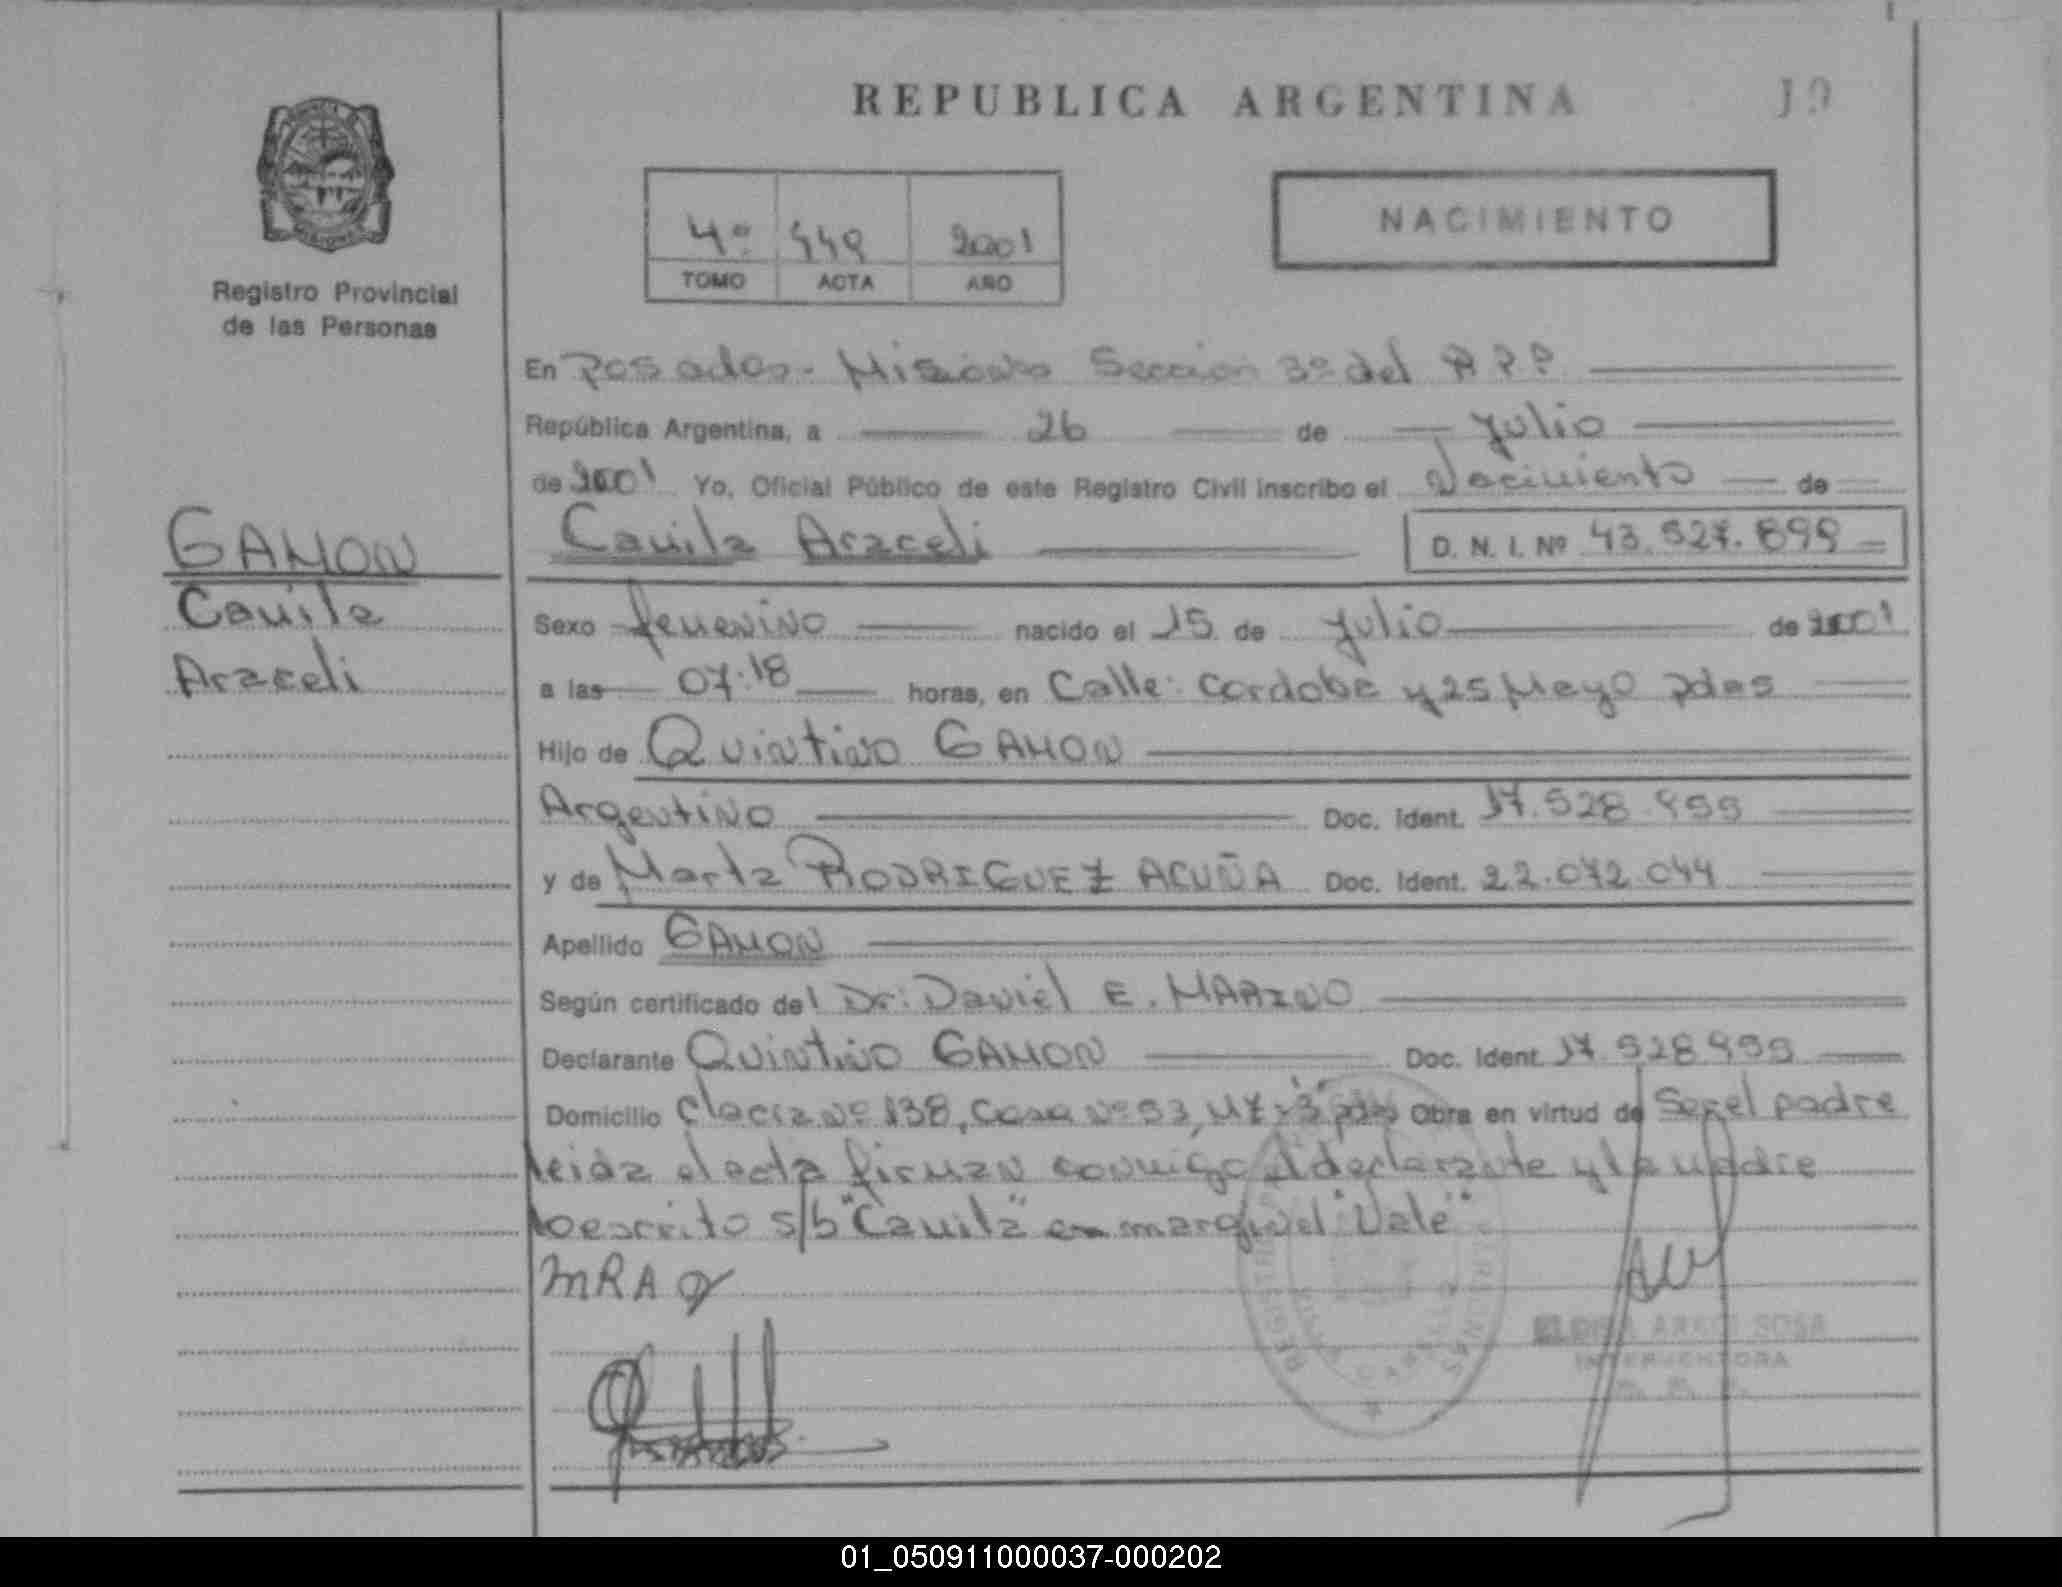 REPUBLICA ARGENTINA
NACIMIENTO
4º 449 2001
TOMO ACTA AÑO
Registro Provincial
de las Personas
En Posadas - Misiones Sección 3º del R P P
República Argentina, a 26 de Julio
de 2001 Yo, Oficial Público de este Registro Civil inscribo el Nacimiento de
Camila Araceli D. N. I. Nº 43.527.899
GAMON
Camila
Araceli
Sexo femenino nacido el 15 de Julio de 2001
a las 07:18 horas, en Calle: Cordoba y 25 Mayo Pdas
Hijo de Quintino GAMON
Argentino Doc. Ident. 17.528.499
y de Marta RODRIGUEZ ACUÑA Doc. Ident. 22.072.044
Apellido GAMON
Según certificado del Dr: Daniel E. MARINO
Declarante Quintino GAMON Doc. Ident 17.528.499
Domicilio Nº 138, Casa Nº 53, Obra en virtud de Ser el padre
leida el acta firman conmigo el declarante y la madre
s/b "Camila" marginal "Vale"
MRA
ARACI SOSA
INTERVENTORA
01_050911000037-000202